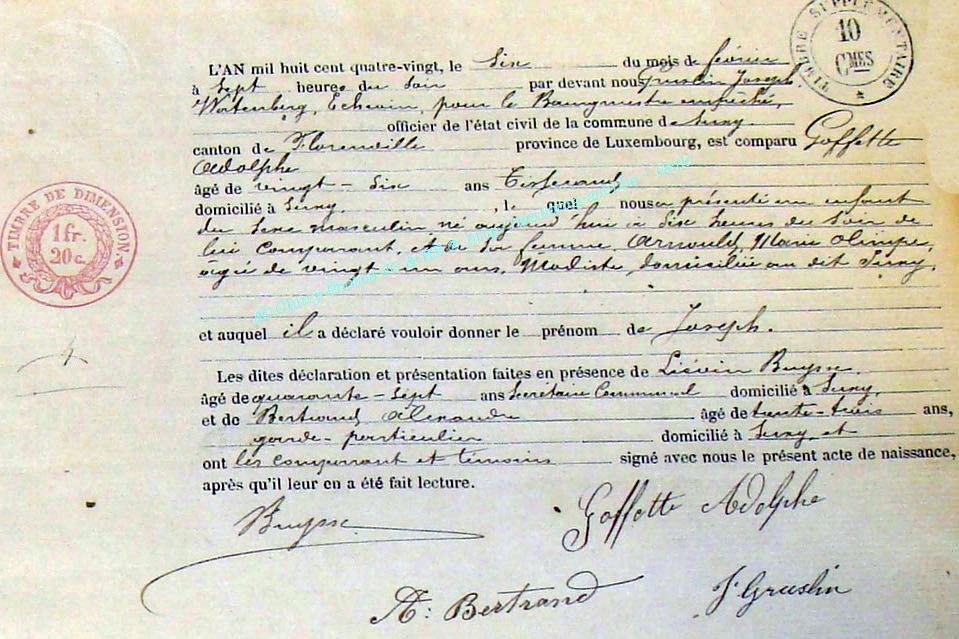 TIMBRE SUPPLÉMENTAIRE
10
CMES
L'AN mil huit cent quatre-vingt, le Six du mois de février
à Sept heures du Soir par devant nous Gruslin Joseph
Echevin, pour le Bourgmestre empêché,
officier de l'état civil de la commune de Suxy
canton de Florenville province de Luxembourg, est comparu Goffette
Adolphe
âgé de vingt-Six ans Tisserand
domicilié à Suxy, le quel nous a présenté un enfant
du Sexe masculin né aujourd'hui à Six heures du Soir de
lui comparant, et de Sa femme, Arnould, Marie Olimpe,
agée de vingt un ans, Modiste, domiciliée au dit Suxy,
TIMBRE DE DIMENSION
1 fr.
20 c.
et auquel il a déclaré vouloir donner le prénom de Joseph.
Les dites déclaration et présentation faites en présence de Liévin Buysse
âgé de quarante-Sept ans Secrétaire Communal domicilié à Suxy
et de Bertrand Alexandre âgé de trente-trois ans,
garde-particulier domicilié à Suxy, et
ont les comparant et témoins signé avec nous le présent acte de naissance,
après qu'il leur en a été fait lecture.
Buysse
Goffette Adolphe
A: Bertrand
J Gruslin